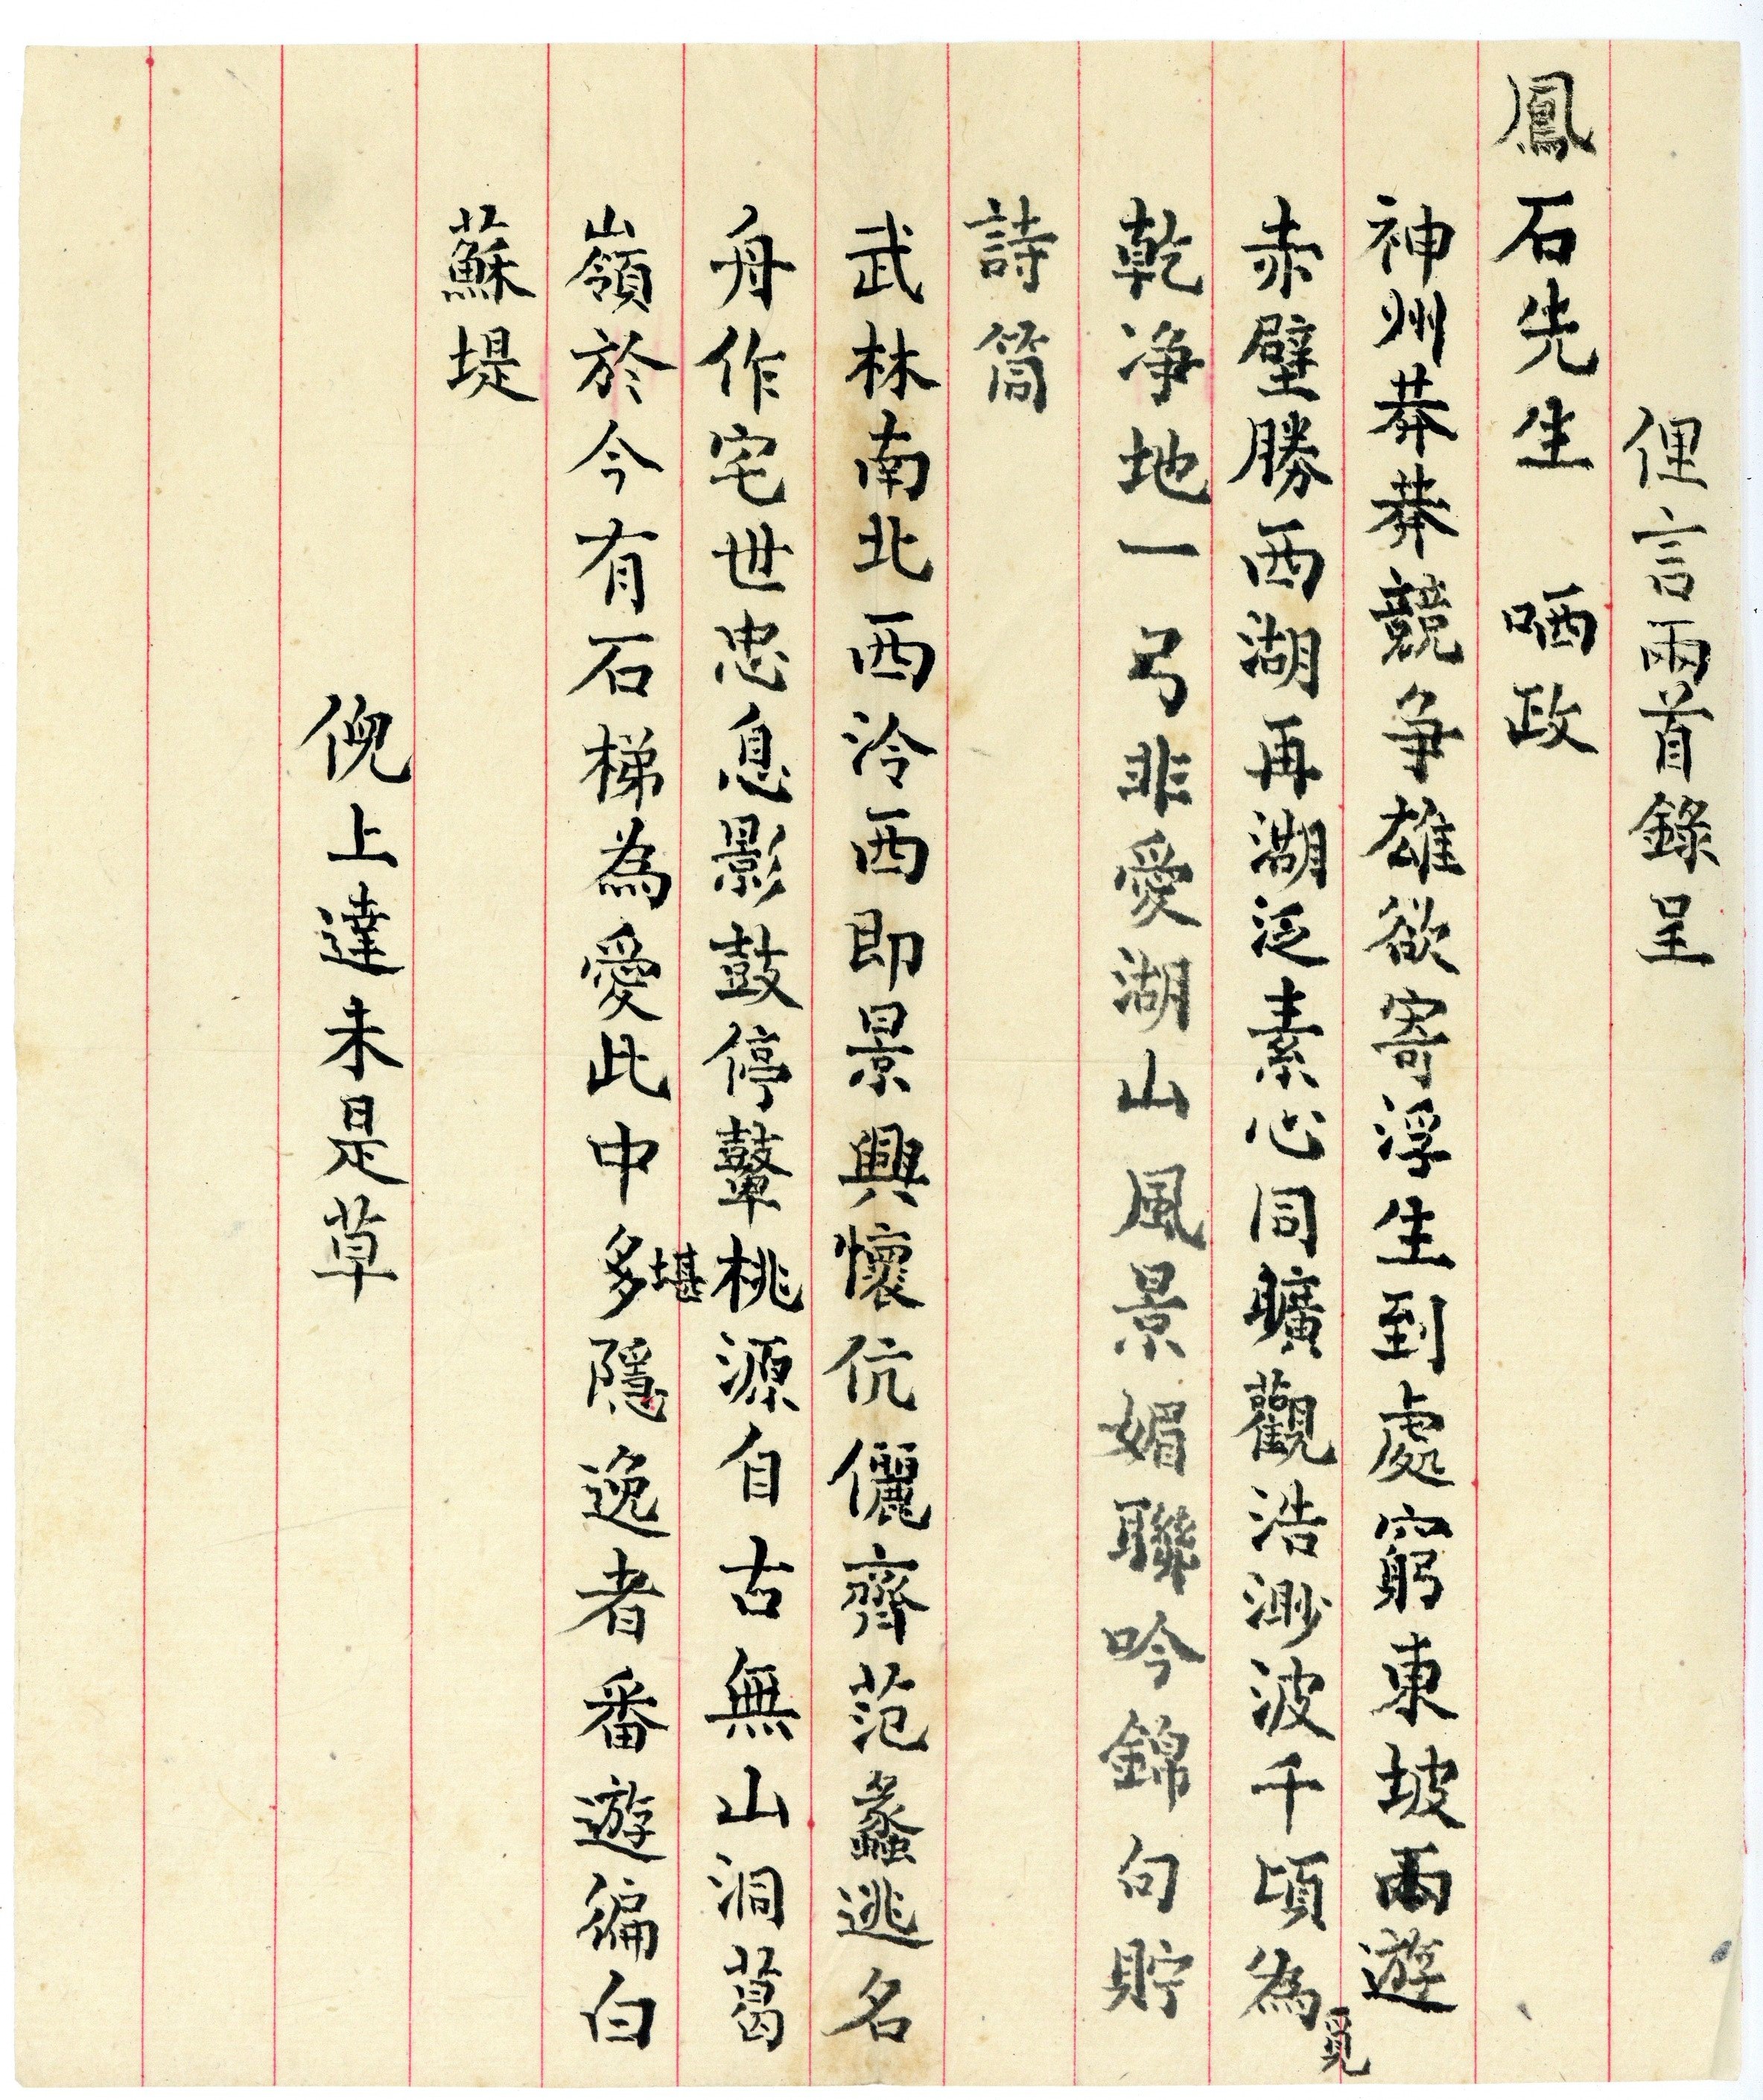 俚言兩首錄呈
鳳石先生　哂政
神州莽莽競爭雄欲寄浮生到處窮東坡兩遊
赤壁勝西湖再湖泛素心同曠觀浩渺波千頃為覓
乾净地一弓非愛湖山風景媚聯吟錦句貯
詩筒
武林南北西泠西即景興懷伉儷齊范蠡逃名
舟作宅世忠息影鼓停鼙桃源自古無山洞葛
嶺於今有石梯為愛此中多堪隱逸者番遊徧白
蘇堤
倪上達未是草